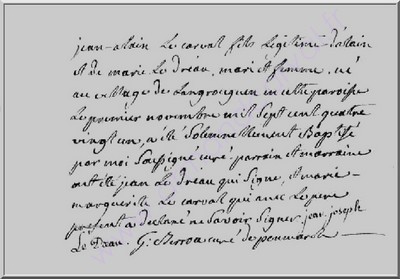 jean-alain Le carval fils Legitime d'allain
et de marie Le dréau, mari et femme, né
au village de Langroeguen en cette paroisse
Le premier novembre mil sept cent quatre
vingt un, a été Solemnellement Baptisé
par moi Soussigné curé parrain et marraine
ont été jean Le dréau qui Signe, et marie-
margueritte Le carval qui avec Le pere
present a declaré ne Savoir Signer. jean joseph
Le Draau. G: curé de penmarch